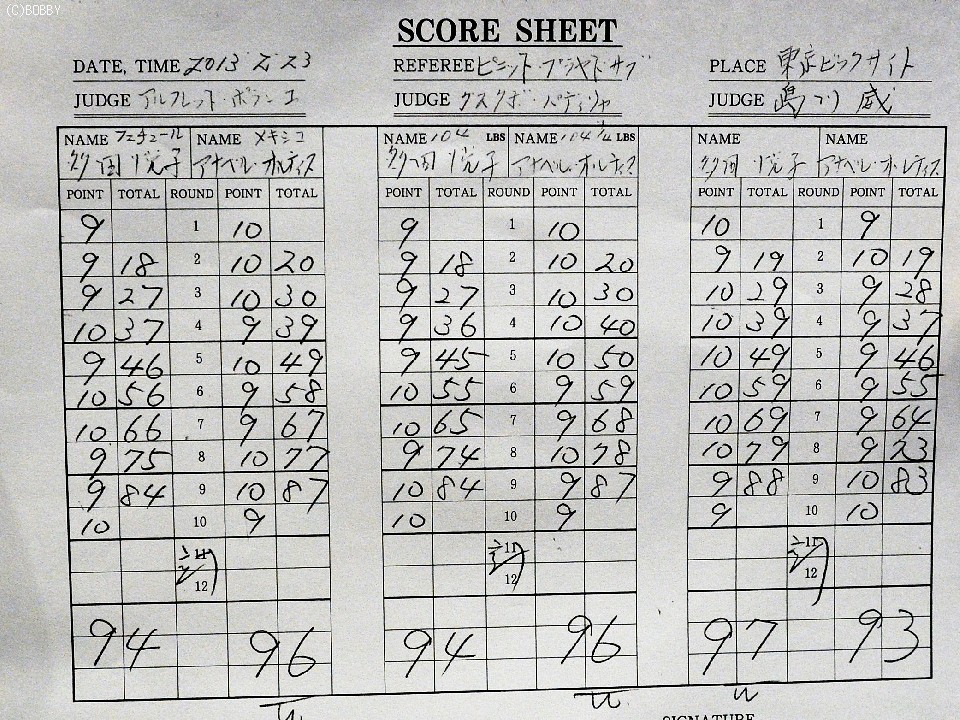 (C)BOBBY
SCORE SHEET
DATE, TIME 2013 2 23 REFEREE ピニット・プラヤドサブ PLACE 東京ビックサイト
JUDGE アルフレット・ポランコ JUDGE グスタボ・パディジャ JUDGE 島川 威
NAME フェデュール NAME メキシコ NAME 104 LBS NAME 104 1/4 LBS NAME NAME
多田 悦子 アナベル・オルティス 多田 悦子 アナベル・オルティス 多田 悦子 アナベル・オルティス
POINT TOTAL ROUND POINT TOTAL POINT TOTAL ROUND POINT TOTAL POINT TOTAL ROUND POINT TOTAL
9 1 10 9 1 10 10 1 9
9 18 2 10 20 9 18 2 10 20 9 19 2 10 19
9 27 3 10 30 9 27 3 10 30 10 29 3 9 28
10 37 4 9 39 9 36 4 10 40 10 39 4 9 37
9 46 5 10 49 9 45 5 10 50 10 49 5 9 46
10 56 6 9 58 10 55 6 9 59 10 59 6 9 55
10 66 7 9 67 10 65 7 9 68 10 69 7 9 64
9 75 8 10 77 9 74 8 10 78 10 79 8 9 73
9 84 9 10 87 10 84 9 9 87 9 88 9 10 83
10 10 9 10 10 9 9 10 10
11 11 11
12 12 12
94 96 94 96 97 93
SIGNATURE